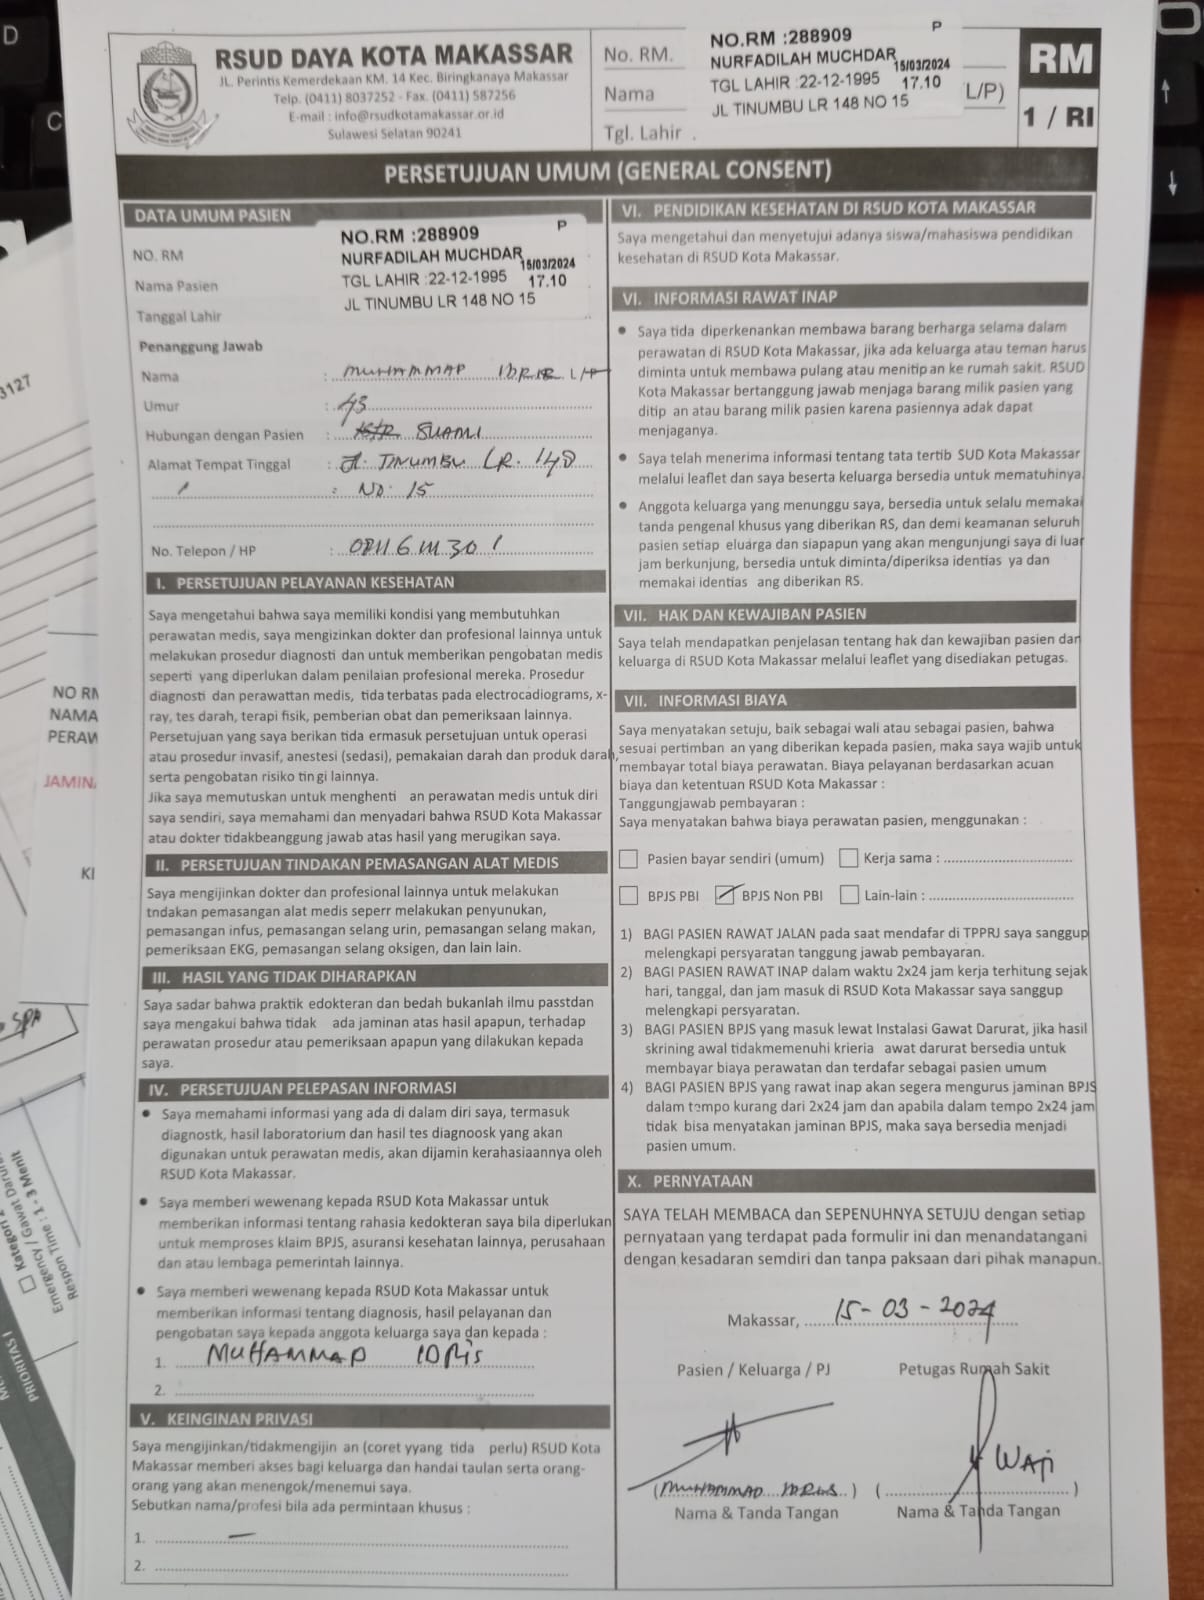 RSUD DAYA KOTA MAKASSAR
JL. Perintis Kemerdekaan KM. 14 Kec. Biringkanaya Makassar
Telp. (0411) 8037252 - Fax. (0411) 587256
E-mail : info@rsudkotamakassar.or.id
Sulawesi Selatan 90241
No. RM.
Nama
Tgl. Lahir
NO.RM :288909 P
NURFADILAH MUCHDAR 15/03/2024
TGL LAHIR :22-12-1995 17.10
JL TINUMBU LR 148 NO 15
L/P)
RM
1 / RI
PERSETUJUAN UMUM (GENERAL CONSENT)
DATA UMUM PASIEN
NO. RM
Nama Pasien
Tanggal Lahir
NO.RM :288909 P
NURFADILAH MUCHDAR 15/03/2024
TGL LAHIR :22-12-1995 17.10
JL TINUMBU LR 148 NO 15
Penanggung Jawab
Nama : MUHAMMAD IDRIS L/P
Umur : 43
Hubungan dengan Pasien : SUAMI
Alamat Tempat Tinggal : Jl. TINUMBU LR. 148
: NO. 15
No. Telepon / HP :
I. PERSETUJUAN PELAYANAN KESEHATAN
Saya mengetahui bahwa saya memiliki kondisi yang membutuhkan
perawatan medis, saya mengizinkan dokter dan profesional lainnya untuk
melakukan prosedur diagnosti dan untuk memberikan pengobatan medis
seperti yang diperlukan dalam penilaian profesional mereka. Prosedur
diagnosti dan perawattan medis, tida terbatas pada electrocadiograms, x-
ray, tes darah, terapi fisik, pemberian obat dan pemeriksaan lainnya.
Persetujuan yang saya berikan tida ermasuk persetujuan untuk operasi
atau prosedur invasif, anestesi (sedasi), pemakaian darah dan produk darah,
serta pengobatan risiko tin gi lainnya.
Jika saya memutuskan untuk menghenti an perawatan medis untuk diri
saya sendiri, saya memahami dan menyadari bahwa RSUD Kota Makassar
atau dokter tidakbeanggung jawab atas hasil yang merugikan saya.
II. PERSETUJUAN TINDAKAN PEMASANGAN ALAT MEDIS
Saya mengijinkan dokter dan profesional lainnya untuk melakukan
tndakan pemasangan alat medis seperr melakukan penyunukan,
pemasangan infus, pemasangan selang urin, pemasangan selang makan,
pemeriksaan EKG, pemasangan selang oksigen, dan lain lain.
III. HASIL YANG TIDAK DIHARAPKAN
Saya sadar bahwa praktik edokteran dan bedah bukanlah ilmu passtdan
saya mengakui bahwa tidak ada jaminan atas hasil apapun, terhadap
perawatan prosedur atau pemeriksaan apapun yang dilakukan kepada
saya.
IV. PERSETUJUAN PELEPASAN INFORMASI
• Saya memahami informasi yang ada di dalam diri saya, termasuk
diagnostk, hasil laboratorium dan hasil tes diagnoosk yang akan
digunakan untuk perawatan medis, akan dijamin kerahasiaannya oleh
RSUD Kota Makassar.
• Saya memberi wewenang kepada RSUD Kota Makassar untuk
memberikan informasi tentang rahasia kedokteran saya bila diperlukan
untuk memproses klaim BPJS, asuransi kesehatan lainnya, perusahaan
dan atau lembaga pemerintah lainnya.
• Saya memberi wewenang kepada RSUD Kota Makassar untuk
memberikan informasi tentang diagnosis, hasil pelayanan dan
pengobatan saya kepada anggota keluarga saya dan kepada :
1. MUHAMMAD IDRIS
2.
V. KEINGINAN PRIVASI
Saya mengijinkan/tidakmengijin an (coret yyang tida perlu) RSUD Kota
Makassar memberi akses bagi keluarga dan handai taulan serta orang-
orang yang akan menengok/menemui saya.
Sebutkan nama/profesi bila ada permintaan khusus :
1. —
2.
VI. PENDIDIKAN KESEHATAN DI RSUD KOTA MAKASSAR
Saya mengetahui dan menyetujui adanya siswa/mahasiswa pendidikan
kesehatan di RSUD Kota Makassar.
VI. INFORMASI RAWAT INAP
• Saya tida diperkenankan membawa barang berharga selama dalam
perawatan di RSUD Kota Makassar, jika ada keluarga atau teman harus
diminta untuk membawa pulang atau menitip an ke rumah sakit. RSUD
Kota Makassar bertanggung jawab menjaga barang milik pasien yang
ditip an atau barang milik pasien karena pasiennya adak dapat
menjaganya.
• Saya telah menerima informasi tentang tata tertib SUD Kota Makassar
melalui leaflet dan saya beserta keluarga bersedia untuk mematuhinya.
• Anggota keluarga yang menunggu saya, bersedia untuk selalu memakai
tanda pengenal khusus yang diberikan RS, dan demi keamanan seluruh
pasien setiap eluarga dan siapapun yang akan mengunjungi saya di luar
jam berkunjung, bersedia untuk diminta/diperiksa identias ya dan
memakai identias ang diberikan RS.
VII. HAK DAN KEWAJIBAN PASIEN
Saya telah mendapatkan penjelasan tentang hak dan kewajiban pasien dan
keluarga di RSUD Kota Makassar melalui leaflet yang disediakan petugas.
VII. INFORMASI BIAYA
Saya menyatakan setuju, baik sebagai wali atau sebagai pasien, bahwa
sesuai pertimban an yang diberikan kepada pasien, maka saya wajib untuk
membayar total biaya perawatan. Biaya pelayanan berdasarkan acuan
biaya dan ketentuan RSUD Kota Makassar :
Tanggungjawab pembayaran :
Saya menyatakan bahwa biaya perawatan pasien, menggunakan :
Pasien bayar sendiri (umum) Kerja sama :
BPJS PBI BPJS Non PBI Lain-lain :
1) BAGI PASIEN RAWAT JALAN pada saat mendafar di TPPRJ saya sanggup
melengkapi persyaratan tanggung jawab pembayaran.
2) BAGI PASIEN RAWAT INAP dalam waktu 2x24 jam kerja terhitung sejak
hari, tanggal, dan jam masuk di RSUD Kota Makassar saya sanggup
melengkapi persyaratan.
3) BAGI PASIEN BPJS yang masuk lewat Instalasi Gawat Darurat, jika hasil
skrining awal tidakmemenuhi krieria awat darurat bersedia untuk
membayar biaya perawatan dan terdafar sebagai pasien umum
4) BAGI PASIEN BPJS yang rawat inap akan segera mengurus jaminan BPJS
dalam tempo kurang dari 2x24 jam dan apabila dalam tempo 2x24 jam
tidak bisa menyatakan jaminan BPJS, maka saya bersedia menjadi
pasien umum.
X. PERNYATAAN
SAYA TELAH MEMBACA dan SEPENUHNYA SETUJU dengan setiap
pernyataan yang terdapat pada formulir ini dan menandatangani
dengan kesadaran semdiri dan tanpa paksaan dari pihak manapun.
Makassar, 15-03-2024
Pasien / Keluarga / PJ Petugas Rumah Sakit
(MUHAMMAD IDRIS) (WATI)
Nama & Tanda Tangan Nama & Tanda Tangan
3127
NO RM
NAMA
PERAW
JAMINA
KI
SPA
Kategori
Emergency / Gawat Darurat
Respon Time : 1 - 3 Menit
PRIORITAS I
D
C